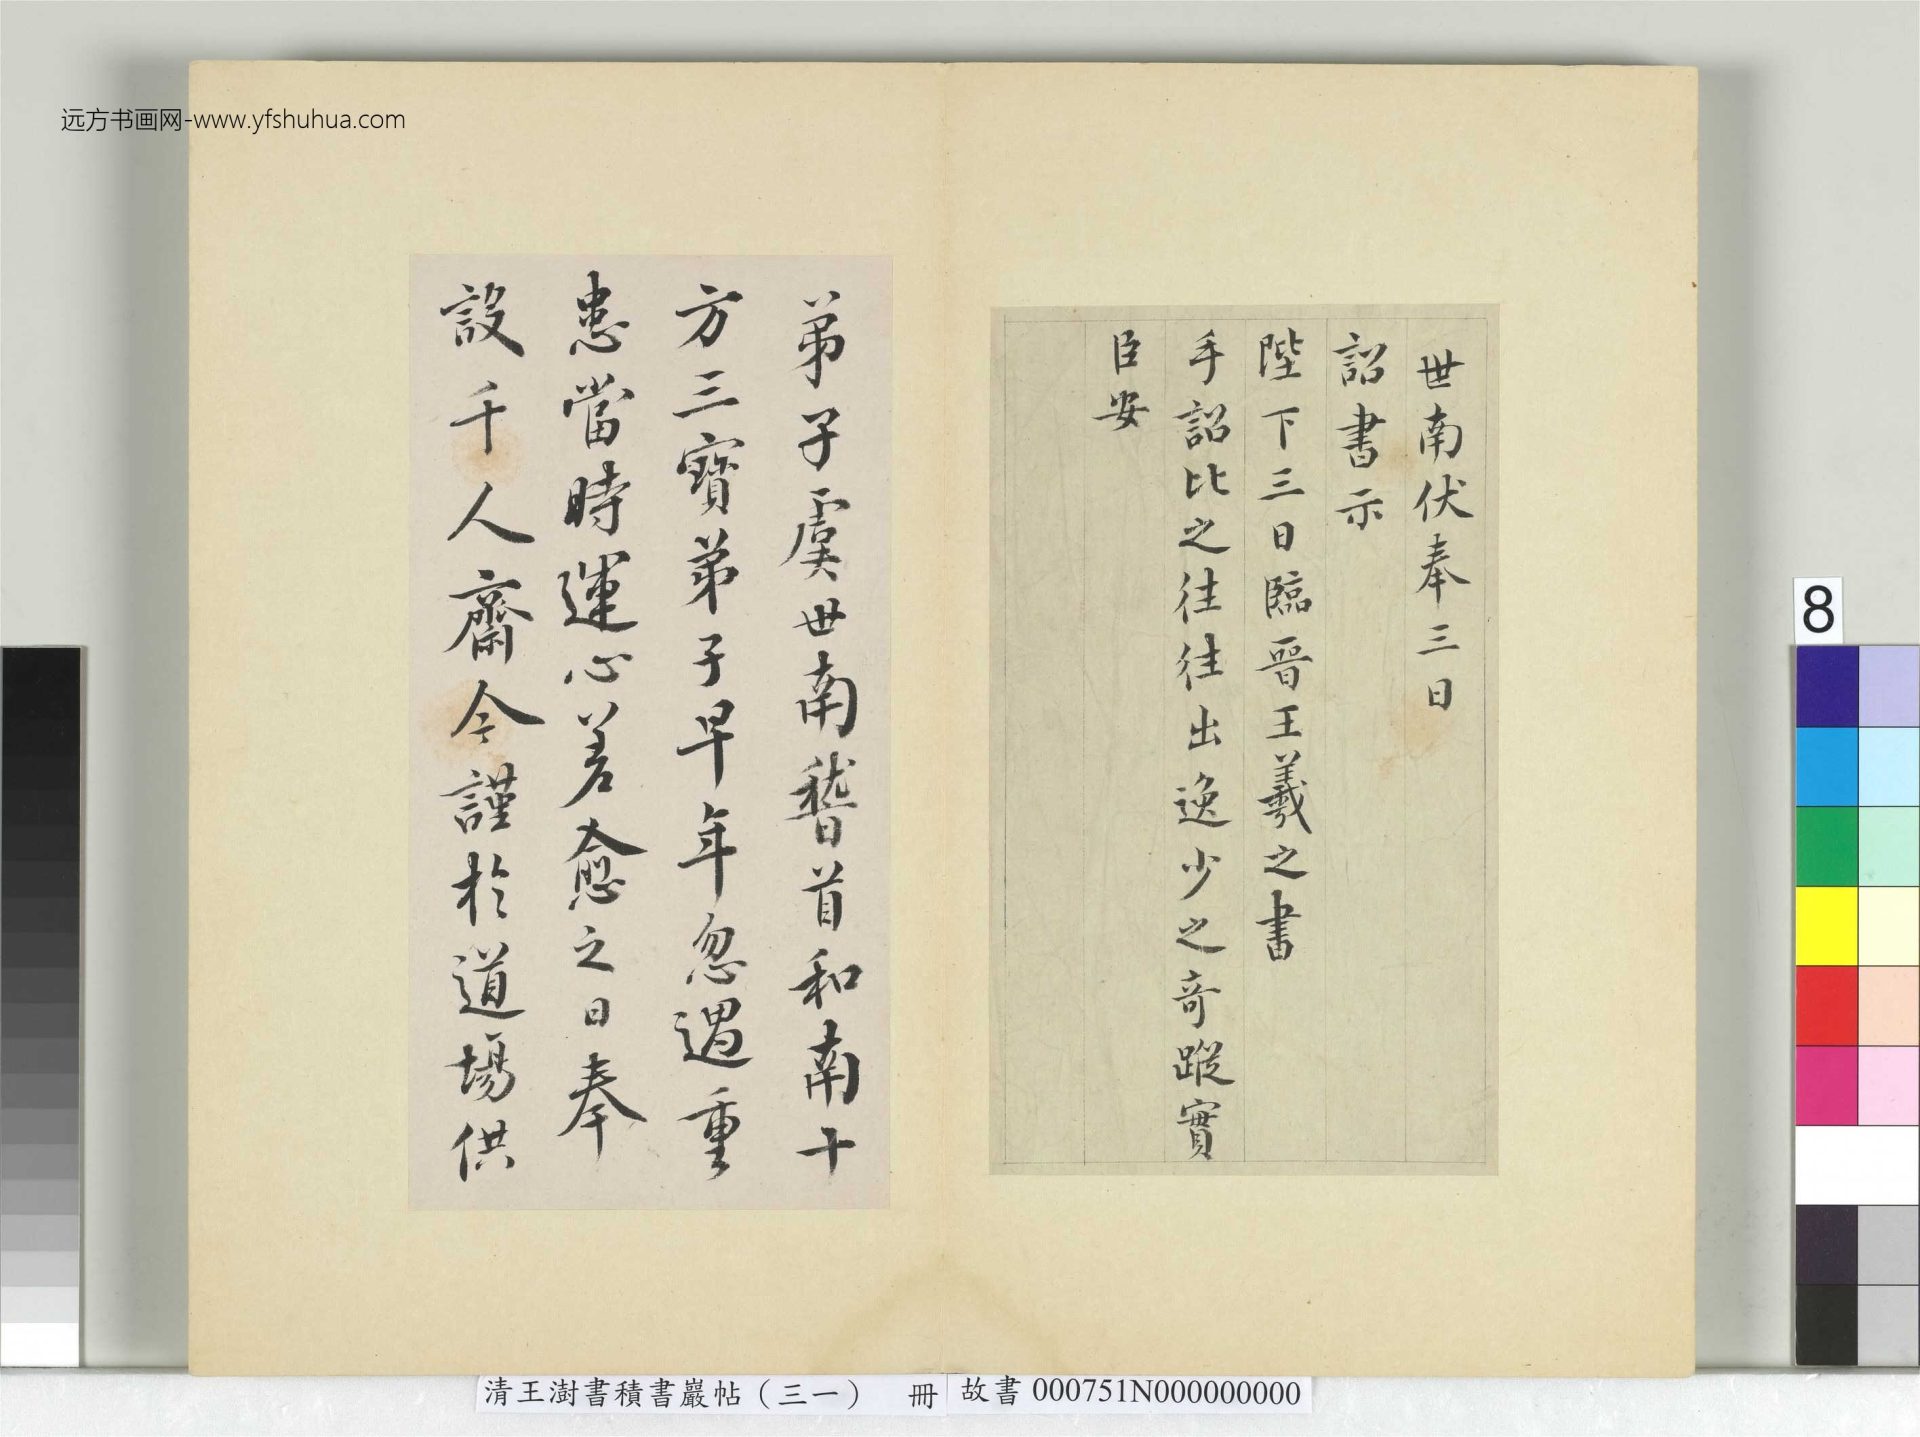 远方书画网-www.yfshuhua.com
世南伏奉三日
詔書示
陛下三日臨晉王羲之書
手詔比之往往出逸少之奇蹤實
臣安
弟子虞世南稽首和南十
方三寶弟子早年忽遇重
患當時運心差愈之日奉
設千人齋今謹於道場供
8
清王澍書積書巖帖（三一） 冊
故書 000751N000000000